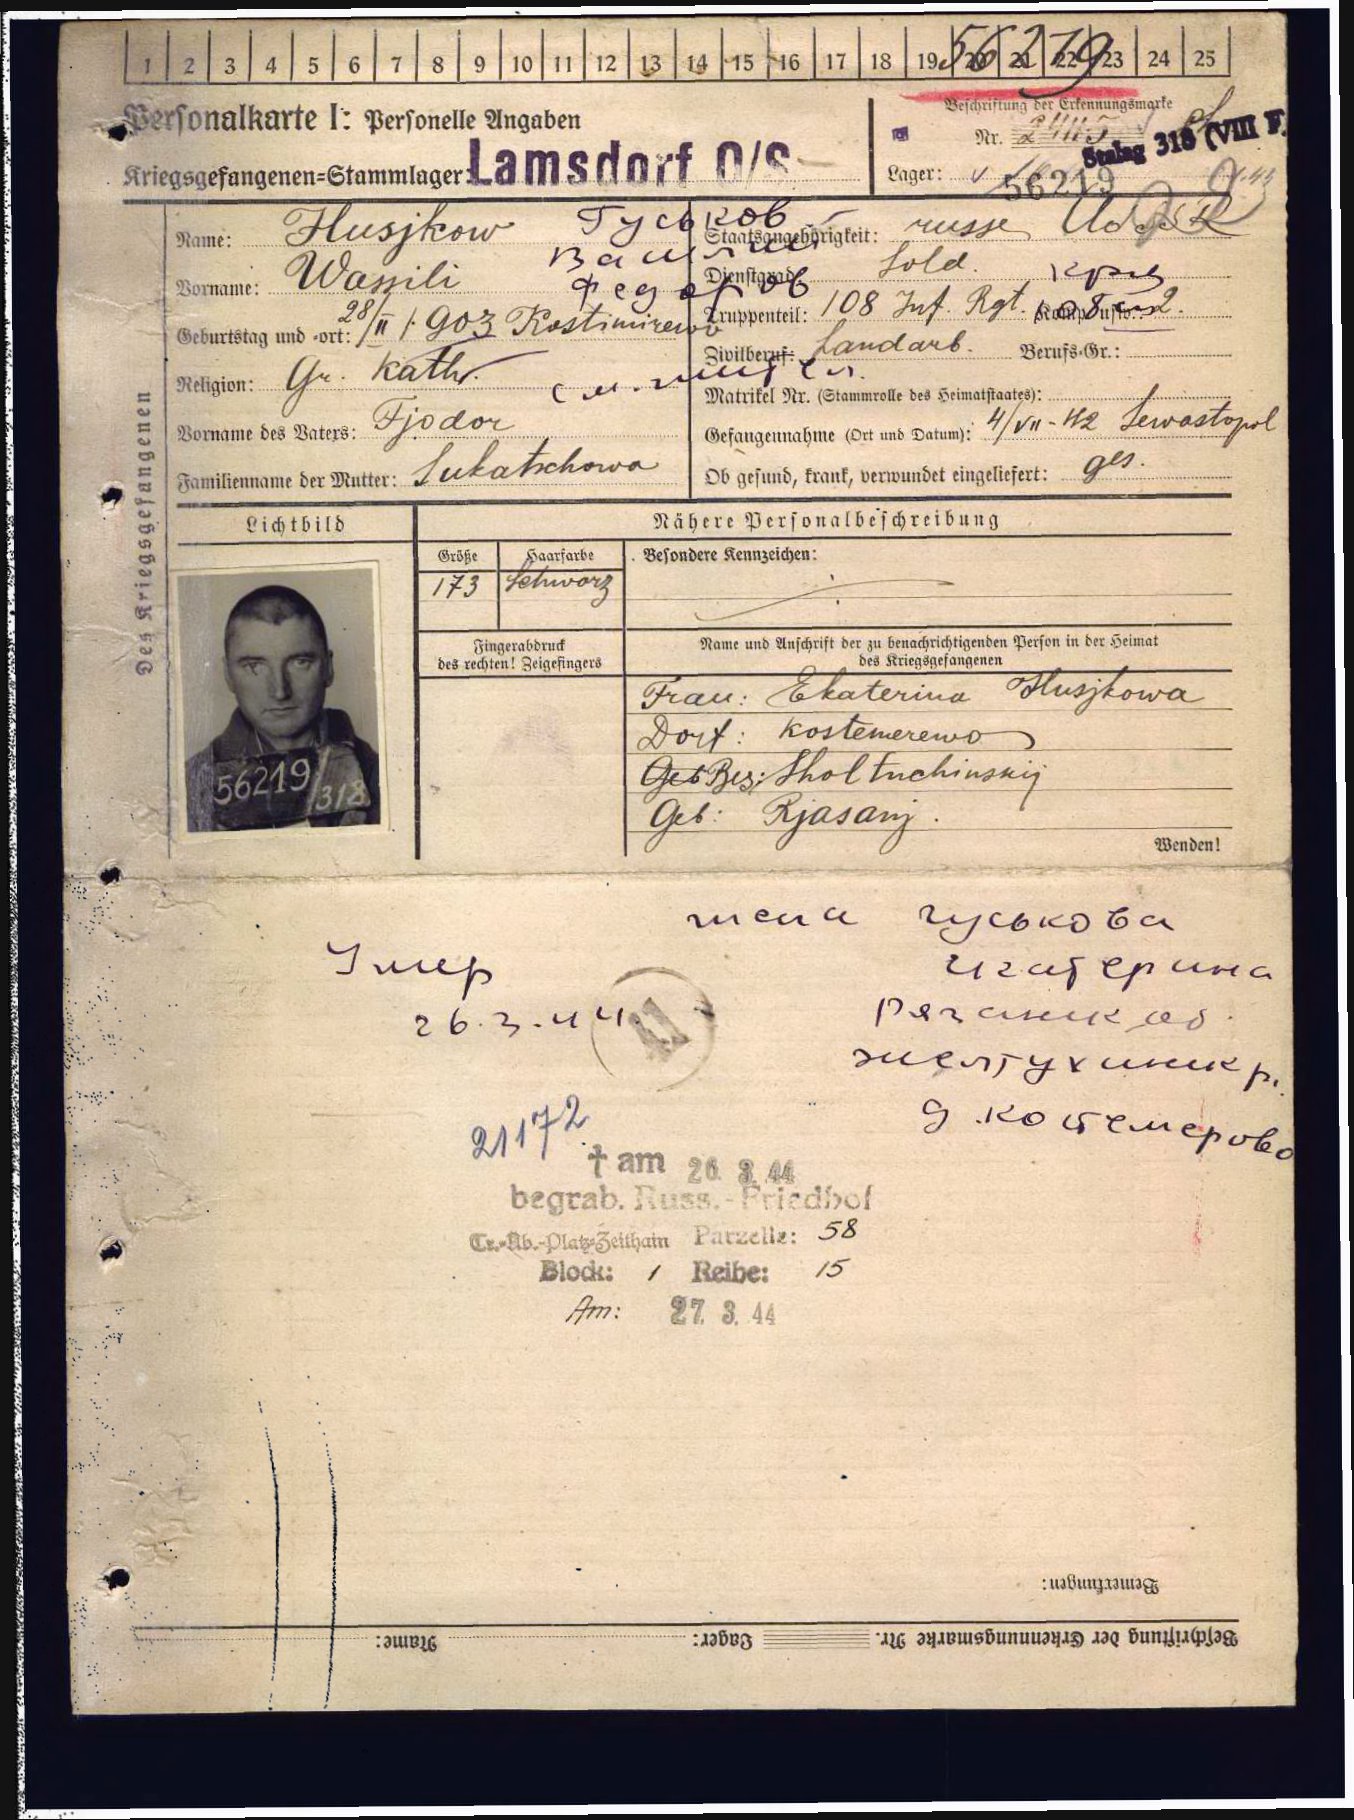 1 2 3 4 5 6 7 8 9 10 11 12 13 14 15 16 17 18 19 20 21 22 23 24 25
56219
Personalkarte I: Personelle Angaben
Kriegsgefangenen-Stammlager: Lamsdorf O/S
Beschriftung der Erkennungsmarke
Nr.
Stalag 318 (VIII F)
Lager:
56219
Des Kriegsgefangenen
Name: Husjkow Гуськов
Vorname: Wassili Василий
Федоров
Geburtstag und -ort: 28/II 1903 Kostimirewo
Religion: Gr. kath.
Vorname des Vaters: Fjodor
Familienname der Mutter: Lukatschowa
Staatsangehörigkeit: russe
Dienstgrad: Sold.
Truppenteil: 108 Inf. Rgt. Komp. usw.: 2.
Zivilberuf: Landarb. Berufs-Gr.:
Matrikel Nr. (Stammrolle des Heimatstaates):
Gefangennahme (Ort und Datum): 4/VII-42 Sewastopol
Ob gesund, krank, verwundet eingeliefert: ges.
Lichtbild
Nähere Personalbeschreibung
Größe Haarfarbe Besondere Kennzeichen:
173 Schwarz
Fingerabdruck
des rechten! Zeigefingers
Name und Anschrift der zu benachrichtigenden Person in der Heimat
des Kriegsgefangenen
Frau: Ekaterina Husjkowa
Dorf: Kostemerewo
Geb Bez: Sholtuchinskij
Geb: Rjasanj.
56219/318
Wenden!
жена Гуськова
Екатерина
Рязанск об.
Желтухинск р.
д. Костемерово
Умер
26.3.44
21172
† am 26. 3. 44
begrab. Russ.-Friedhof
Tr.-Üb.-Platz-Zeithain Parzelle: 58
Block: 1 Reihe: 15
Am: 27. 3. 44
Bemerkungen:
Beschriftung der Erkennungsmarke Nr. Lager: Name: